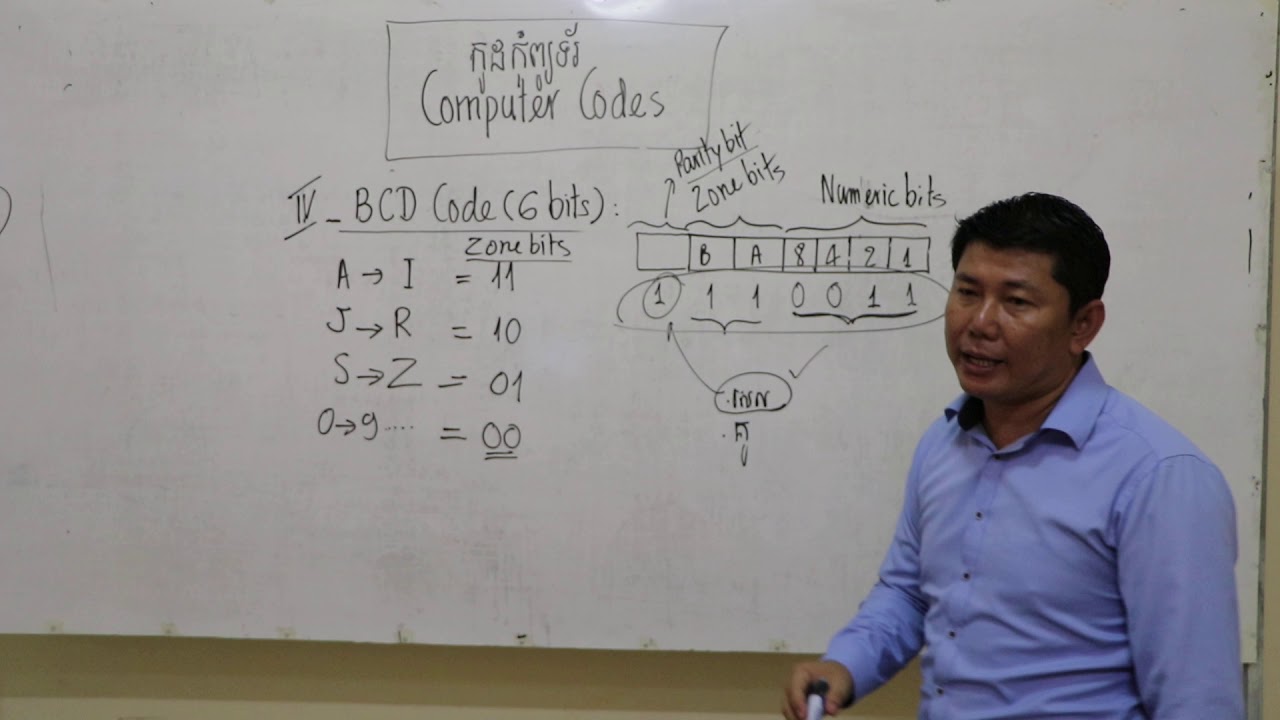 កូដកុំព្យូទ័រ
Computer Codes
IV - BCD Code (6 bits):
Zone bits
A → I = 11
J → R = 10
S → Z = 01
0 → 9 .... = 00
Parity bit
Zone bits
Numeric bits
B A 8 4 2 1
1 1 1 0 0 1 1
. សេស
. គូ